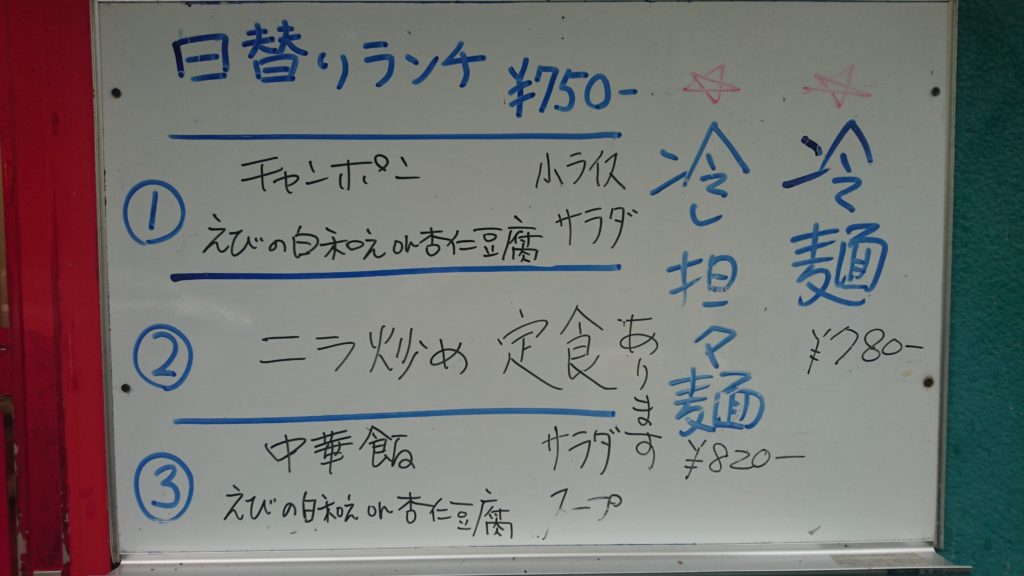 日替りランチ ¥750-
① チャンポン 小ライス
えびの白和え or 杏仁豆腐 サラダ
② ニラ炒め 定食
③ 中華飯 サラダ
えびの白和え or 杏仁豆腐 スープ
あります
☆ 冷し担々麺
¥820-
☆ 冷麺
¥780-